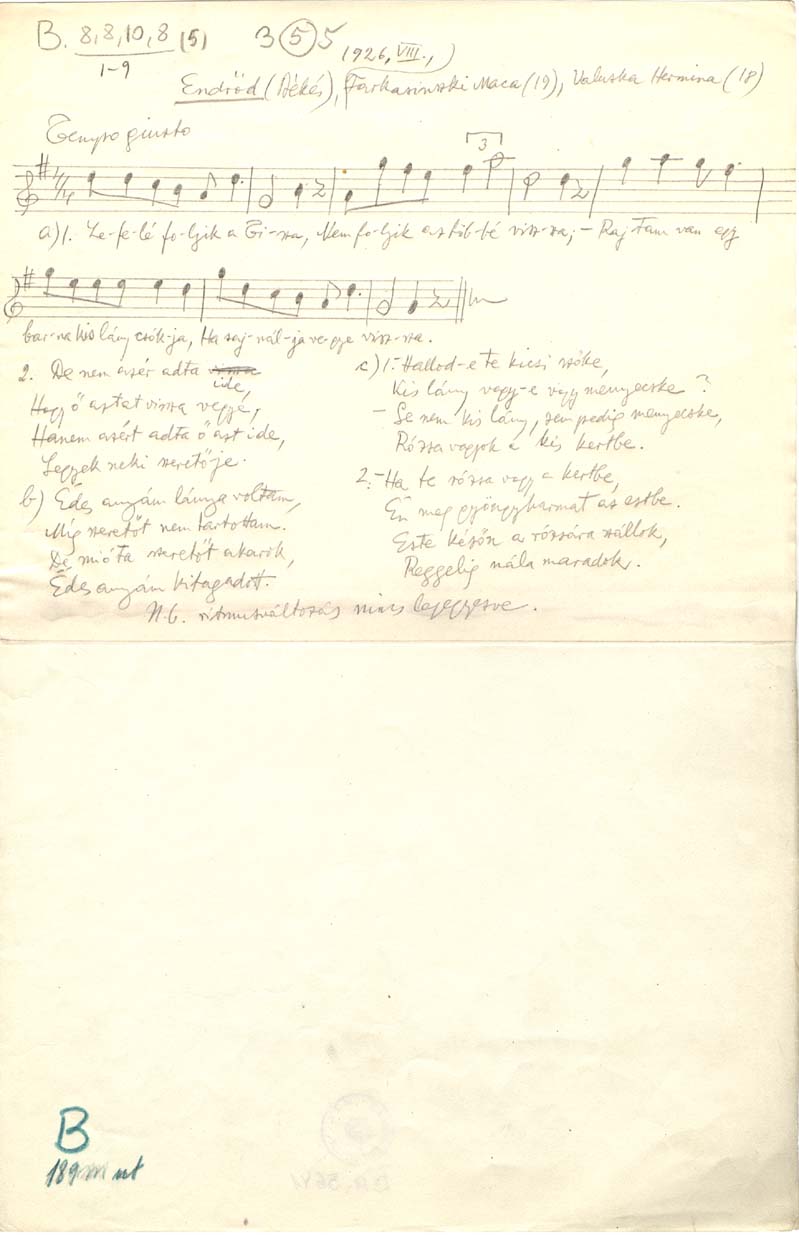 B. 8,8,10,8 (5) 3 (5) 5
1-9
1926, VIII.,)
Endrőd (Békés), Farkasinszki Maca (19), Valuska Hermina (18)
Tempo giusto
3
a) 1. Le-fe-lé fo-lyik a Ti-sza, Nem fo-lyik az töb-bé visz-sza; – Raj-tam van egy
bar-na kis lány csók-ja, Ha saj-nál-ja ve-gye visz-sza.
2. De nem azér adta vissza
ide,
Hogy ő aztat vissza vegye,
Hanem azért adta ő azt ide,
Legyek neki szeretője.
b) Édes anyám lánya voltam,
Míg szeretőt nem tartottam.
De mióta szeretőt akarok,
Édes anyám kitagadott.
c) 1. – Hallod-e te kicsi szőke,
Kis lány vagy-e vagy menyecske?
– Se nem kis lány, sem pedig menyecske,
Rózsa vagyok a kis kertbe.
2. – Ha te rózsa vagy a kertbe,
Én meg gyöngyharmat az estbe.
Este későn a rózsára szállok,
Reggelig nála maradok.
N.b. ritmusváltozás nincs lejegyezve.
B
189